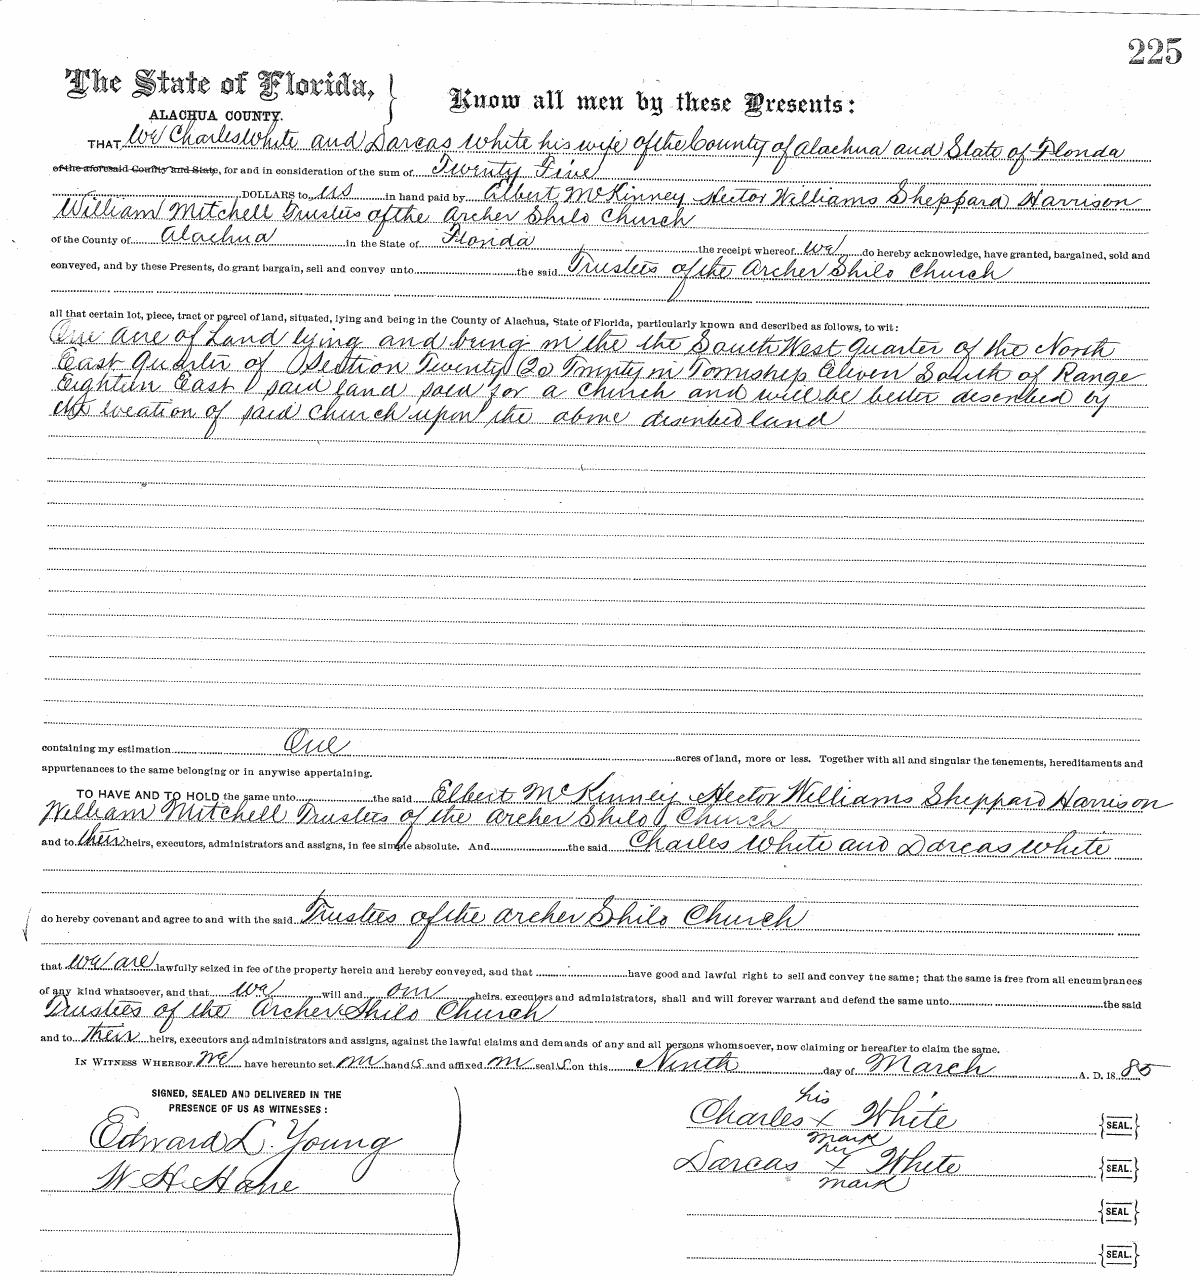 225
The State of Florida,
ALACHUA COUNTY.
Know all men by these Presents:
THAT We Charles White and Darcas White his wife of the County of Alachua and State of Florida
of the aforesaid County and State, for and in consideration of the sum of Twenty Five
DOLLARS to us in hand paid by Elbert McKinney Hector Williams Sheppard Harrison
William Mitchell Trustees of the Archer Shilo Church
of the County of Alachua in the State of Florida the receipt whereof we do hereby acknowledge, have granted, bargained, sold and
conveyed, and by these Presents, do grant bargain, sell and convey unto the said Trustees of the Archer Shilo Church
all that certain lot, piece, tract or parcel of land, situated, lying and being in the County of Alachua, State of Florida, particularly known and described as follows, to wit:
One acre of Land lying and being in the the South West quarter of the North
East Quarter of Section Twenty (20 Twenty in Township Eleven South of Range
Eighteen East said land sold for a church and will be better described by
the location of said church upon the above described land
containing my estimation One acres of land, more or less. Together with all and singular the tenements, hereditaments and
appurtenances to the same belonging or in anywise appertaining.
TO HAVE AND TO HOLD the same unto the said Elbert McKinney Hector Williams Sheppard Harrison
William Mitchell Trustees of the Archer Shilo Church
and to their heirs, executors, administrators and assigns, in fee simple absolute. And the said Charles White and Darcas White
do hereby covenant and agree to and with the said Trustees of the Archer Shilo Church
that we are lawfully seized in fee of the property herein and hereby conveyed, and that have good and lawful right to sell and convey the same; that the same is free from all encumbrances
of any kind whatsoever, and that we will and our heirs, executors and administrators, shall and will forever warrant and defend the same unto the said
Trustees of the Archer Shilo Church
and to their heirs, executors and administrators and assigns, against the lawful claims and demands of any and all persons whomsoever, now claiming or hereafter to claim the same.
IN WITNESS WHEREOF we have hereunto set our hands and affixed our seal s on this Ninth day of March A. D. 18 85
SIGNED, SEALED AND DELIVERED IN THE
PRESENCE OF US AS WITNESSES:
Edward L. Young
W. H.
his
Charles X White SEAL.
mark
her
Darcas X White SEAL.
mark
SEAL
SEAL.